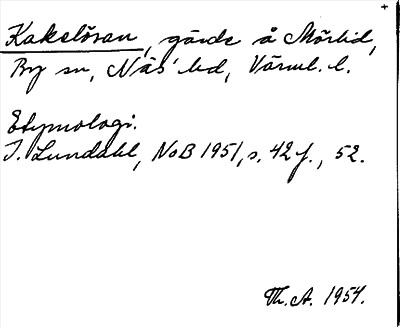 Kakelösan, gärde å Mörlid,
By sn, Näs' hd, Värml. l.
Etymologi.
I. Lundahl, NoB 1951, s. 42 f., 52.
Th. A. 1954.